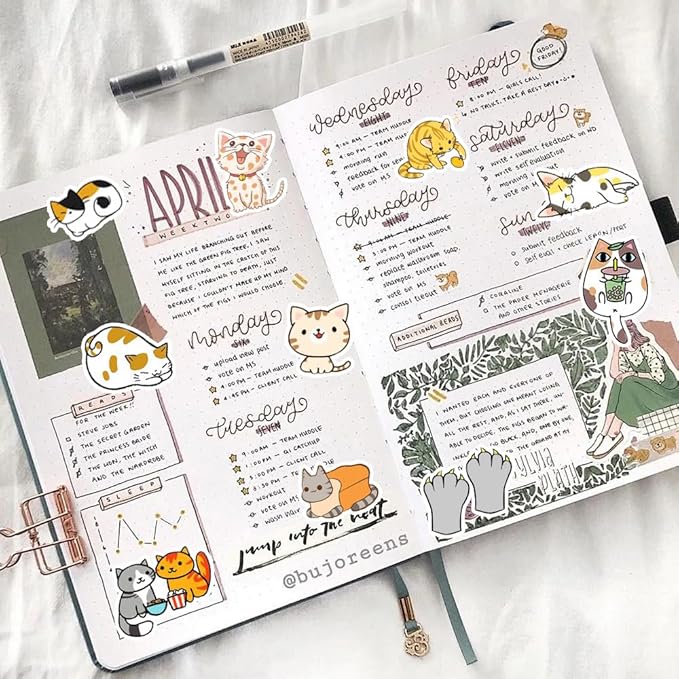 APRIL
WEEK TWO
I SAW MY LIFE BRANCHING OUT BEFORE
ME LIKE THE GREEN FIG TREE. I SAW
MYSELF SITTING IN THE CROTCH OF THIS
FIG TREE, STARVING TO DEATH, JUST
BECAUSE I COULDN'T MAKE UP MY MIND
WHICH OF THE FIGS I WOULD CHOOSE.
READS
FOR THE WEEK!!
STEVE JOBS
THE SECRET GARDEN
THE PRINCESS BRIDE
THE LION, THE WITCH
AND THE WARDROBE
SLEEP
monday
SIX
upload new post
vote on MS
4:00 PM - TEAM HUDDLE
4:45 PM - CLIENT CALL
tuesday
SEVEN
9:00 AM - TEAM HUDDLE
1:00 PM - QI CATCHUP
PM - CLIENT CALL
PM - TEAM HUDDLE
WORKOUT
vote on MS
wash hair
jump into the
@bujoreens
wednesday
EIGHT
9:00 AM - TEAM HUDDLE
4:00 PM - TEAM HUD
morning run
Feedback for
vote on MS
thursday
NINE
AM - TEAM HUDDLE
3:00 PM - TEAM HUDDLE
morning workout
replace bathroom soap,
shampoo, toiletries
vote on MS
friday
TEN
GOOD
FRIDAY!
8:00 PM - GIRLS CALL!
NO TASKS, TAKE A REST DAY
saturday
ELEVEN
write + submit feedback on ND
write self evaluation
morning
vote on M
sun
TWELVE
submit feedback
self eval: check
ADDITIONAL READS
CORALINE
THE PAPER MENAGERIE
AND OTHER STORIES
I WANTED EACH AND EVERY ONE OF
THEM, BUT CHOOSING ONE MEANT LOSING
ALL THE REST, AND, AS I SAT THERE, UN-
ABLE TO DECIDE, THE FIGS BEGAN TO WR-
BLACK, AND, ONE BY ONE,
THE GROUND AT MY
SYLVIA
PLATH